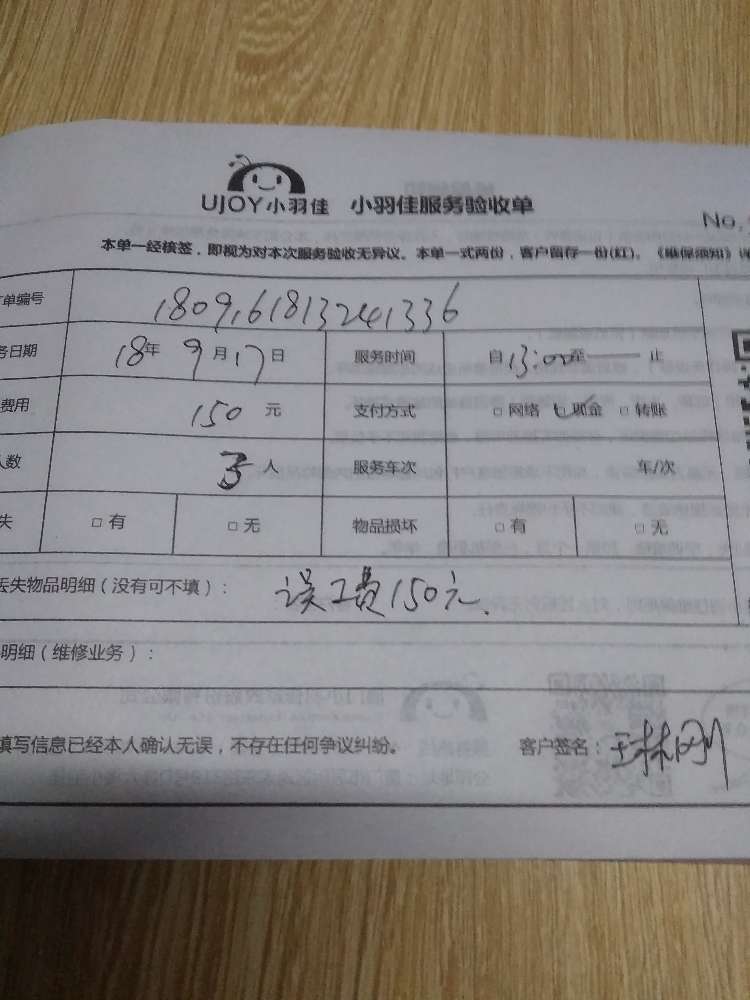 UJOY小羽佳 小羽佳服务验收单
No.
本单一经核签，即视为对本次服务验收无异议。本单一式两份，客户留存一份(红)。《维保须知》详
单编号 1809161813241336
务日期 18年 9月17日 服务时间 自13:00至——止
费用 150 元 支付方式 □ 网络 □ 现金 □ 转账
人数 3 人 服务车次 车/次
失 □ 有 □ 无 物品损坏 □ 有 □ 无
丢失物品明细（没有可不填）： 误工费150元.
明细（维修业务）：
填写信息已经本人确认无误，不存在任何争议纠纷。 客户签名：王林刚